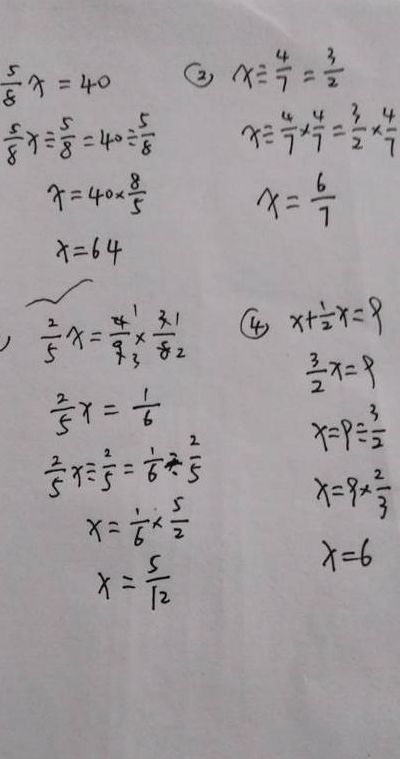 5/8 x = 40
5/8 x ÷ 5/8 = 40 ÷ 5/8
x = 40 × 8/5
x = 64
② x ÷ 4/7 = 3/2
x ÷ 4/7 × 4/7 = 3/2 × 4/7
x = 6/7
2/5 x = 4/9 × 3/8
2/5 x = 1/6
2/5 x ÷ 2/5 = 1/6 ÷ 2/5
x = 1/6 × 5/2
x = 5/12
④ x + 1/2 x = 9
3/2 x = 9
x = 9 ÷ 3/2
x = 9 × 2/3
x = 6